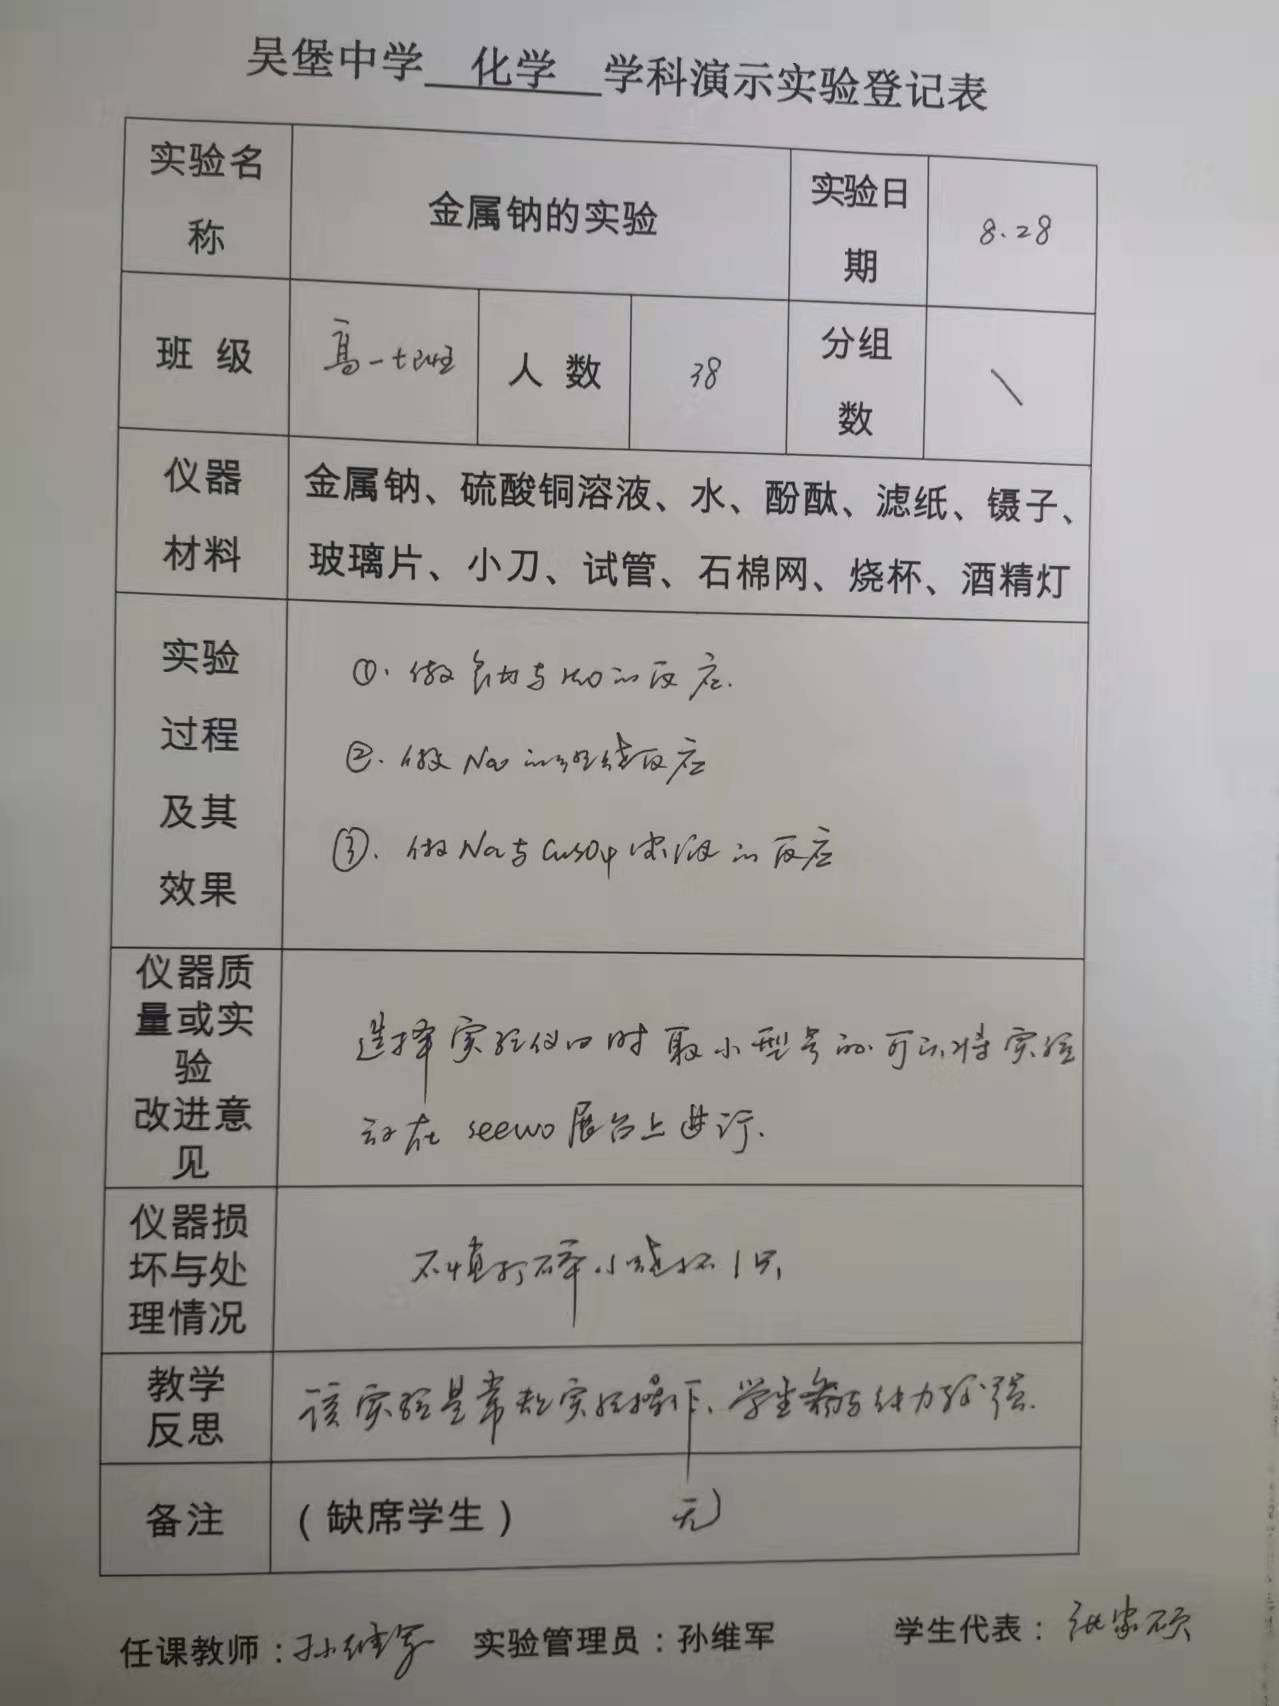 吴堡中学 化学 学科演示实验登记表
实验名称 金属钠的实验 实验日期 8.28
班 级 高一七班 人 数 38 分组数 \
仪器材料 金属钠、硫酸铜溶液、水、酚酞、滤纸、镊子、
玻璃片、小刀、试管、石棉网、烧杯、酒精灯
实验过程及其效果
①. 做钠与H2O的反应.
②. 做Na的燃烧反应
③. 做Na与CuSO4溶液的反应
仪器质量或实验改进意见
选择实验仪口时取小型号的可以将实验
放在seewo展台上进行.
仪器损坏与处理情况 不慎打碎小烧杯1只,
教学反思 该实验是常规实验操作、学生参与能力较强.
备注 (缺席学生) 无
任课教师:孙维军 实验管理员:孙维军 学生代表:张家硕